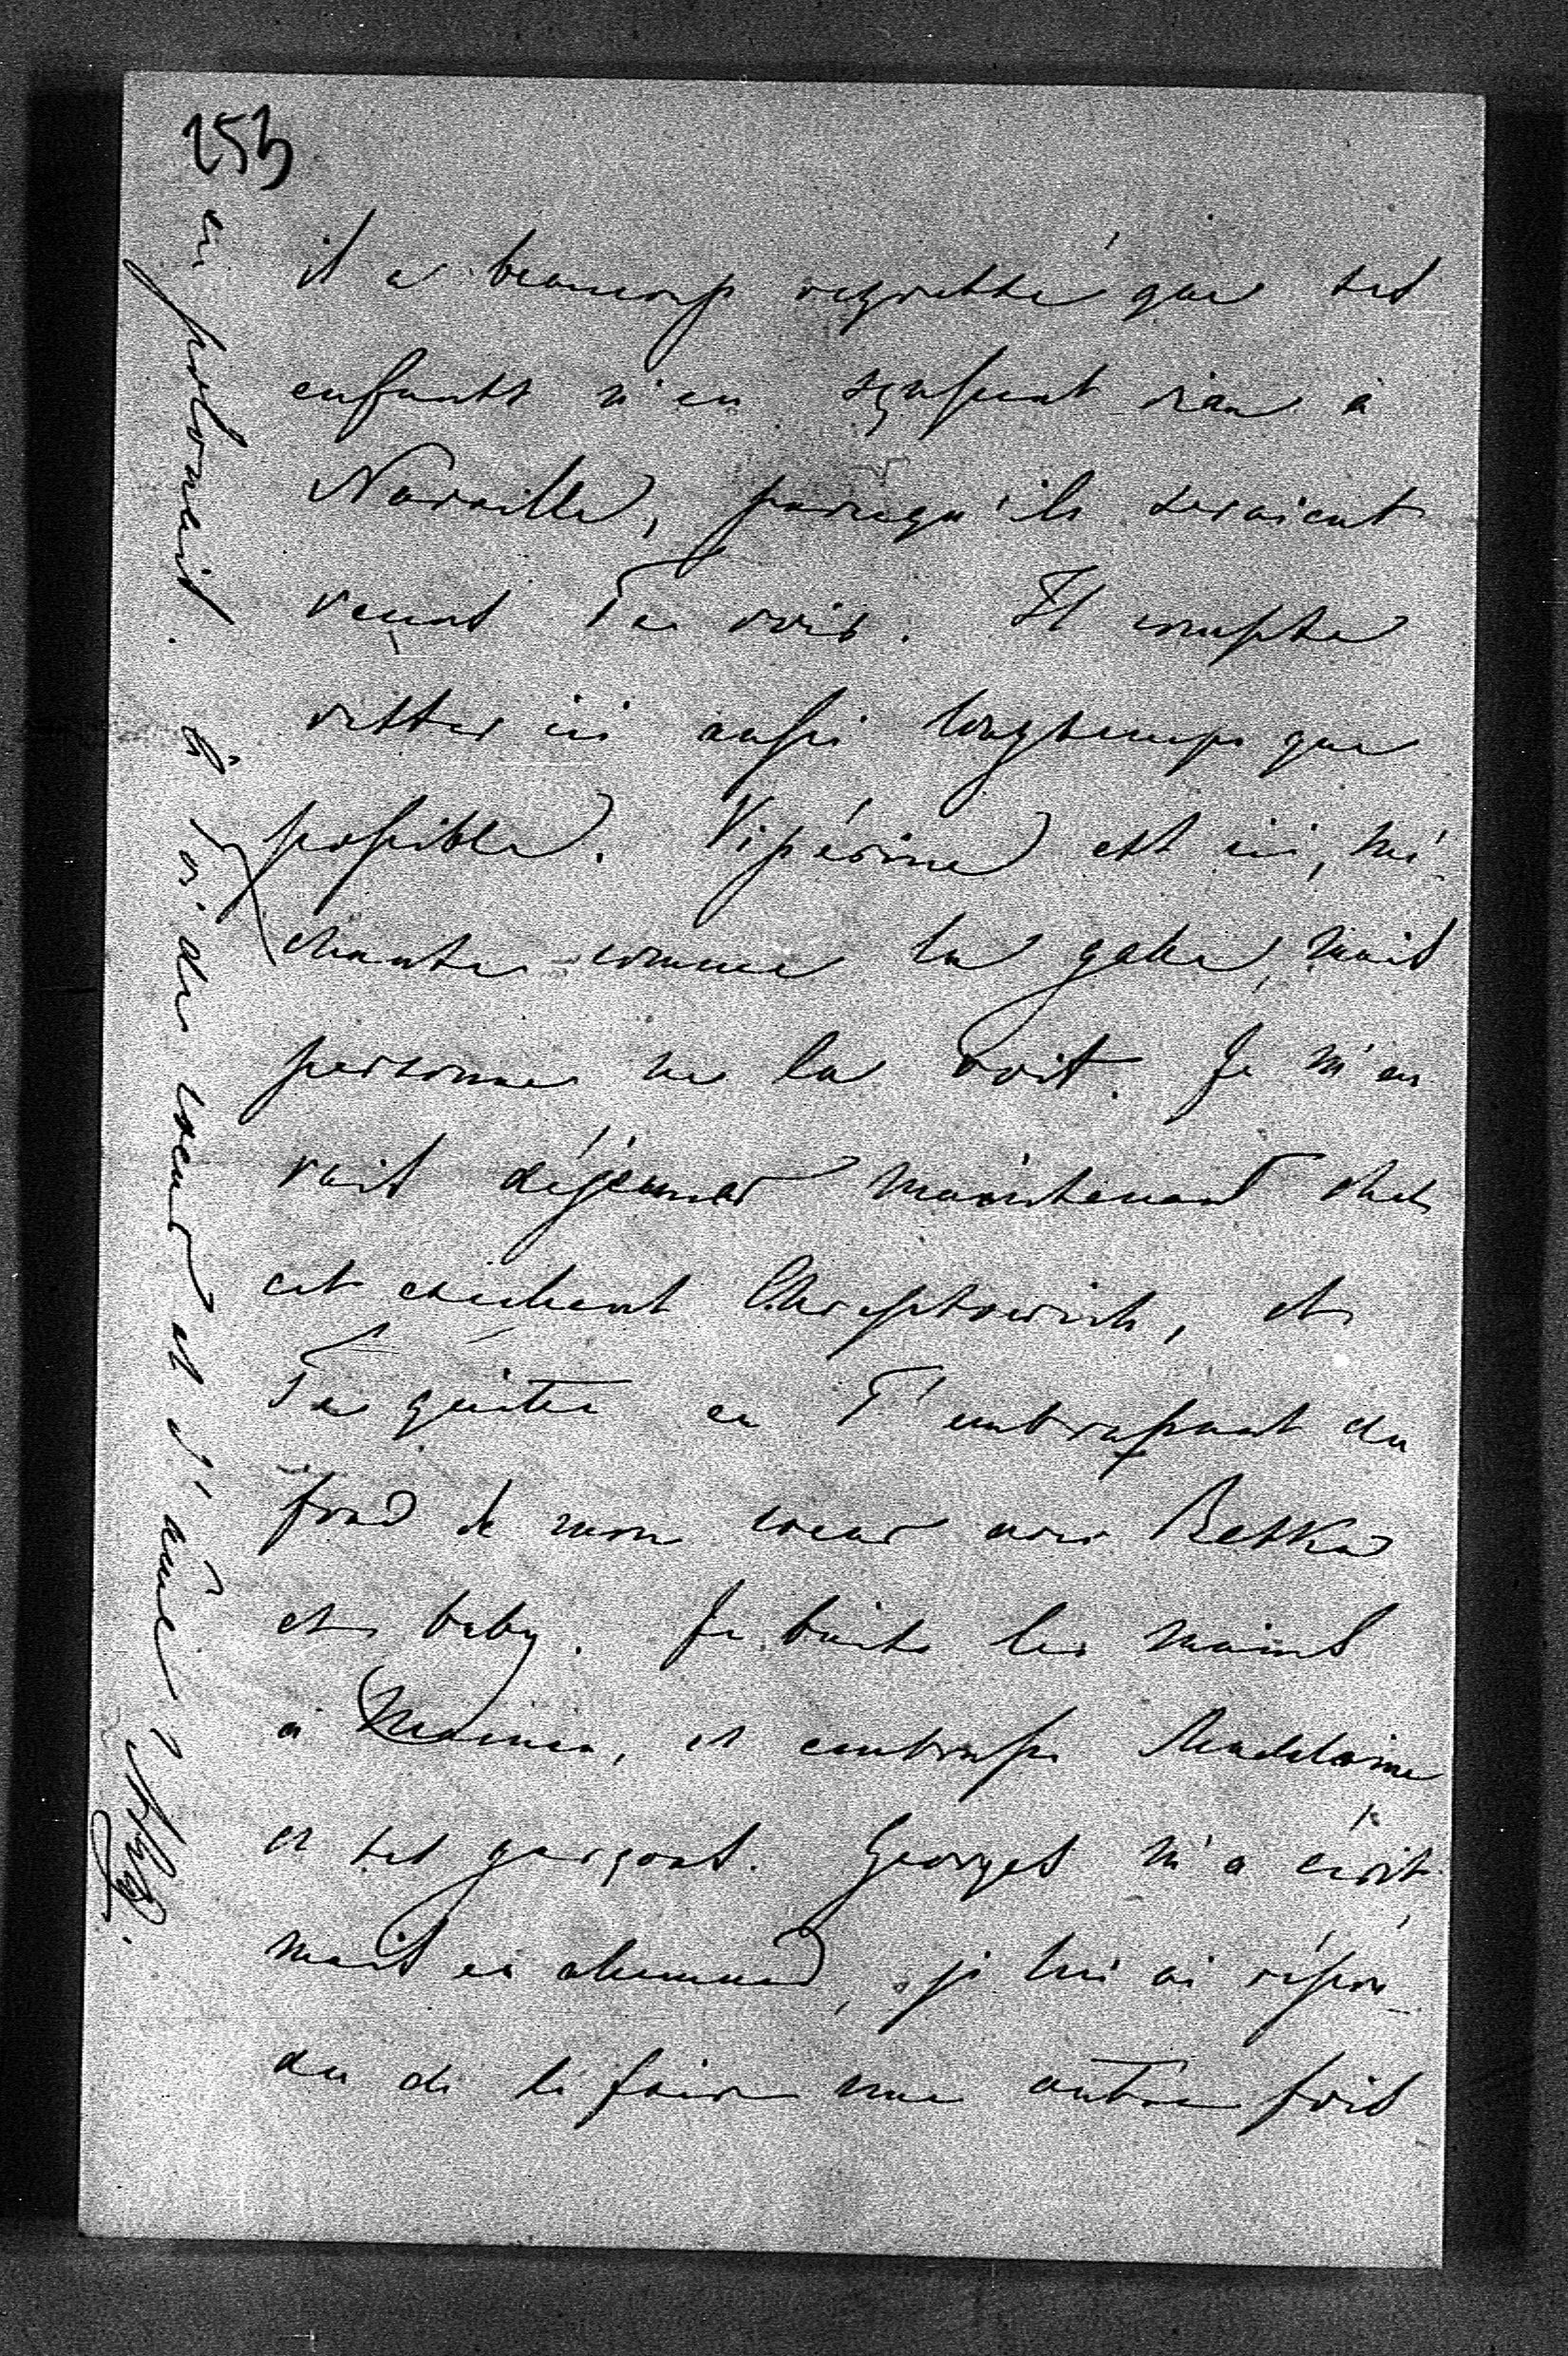 253
il a beaucoup regretté que ses
enfants n'en sçussent rien à
Naraille, parcequ'ils seraient
venus Te voir. Il compte
rester ici aussi longtemps que
possible. Vipérine est ici, mé-
chante comme la gale, mais
personne ne la voit. Je m'en
vais déjeuner maintenant chez
cet excellent Chreptowich, et
Te quitte en T'embrassant du
fond de mon coeur avec Betka
et baby. Je baise les mains
à Maman, et embrasse Madelaine
et ses garçons. Georges m'a écrit
mais en allemand, je lui ai répon-
du de le faire une autre fois
en polonais. à Toi de coeur et d'âme